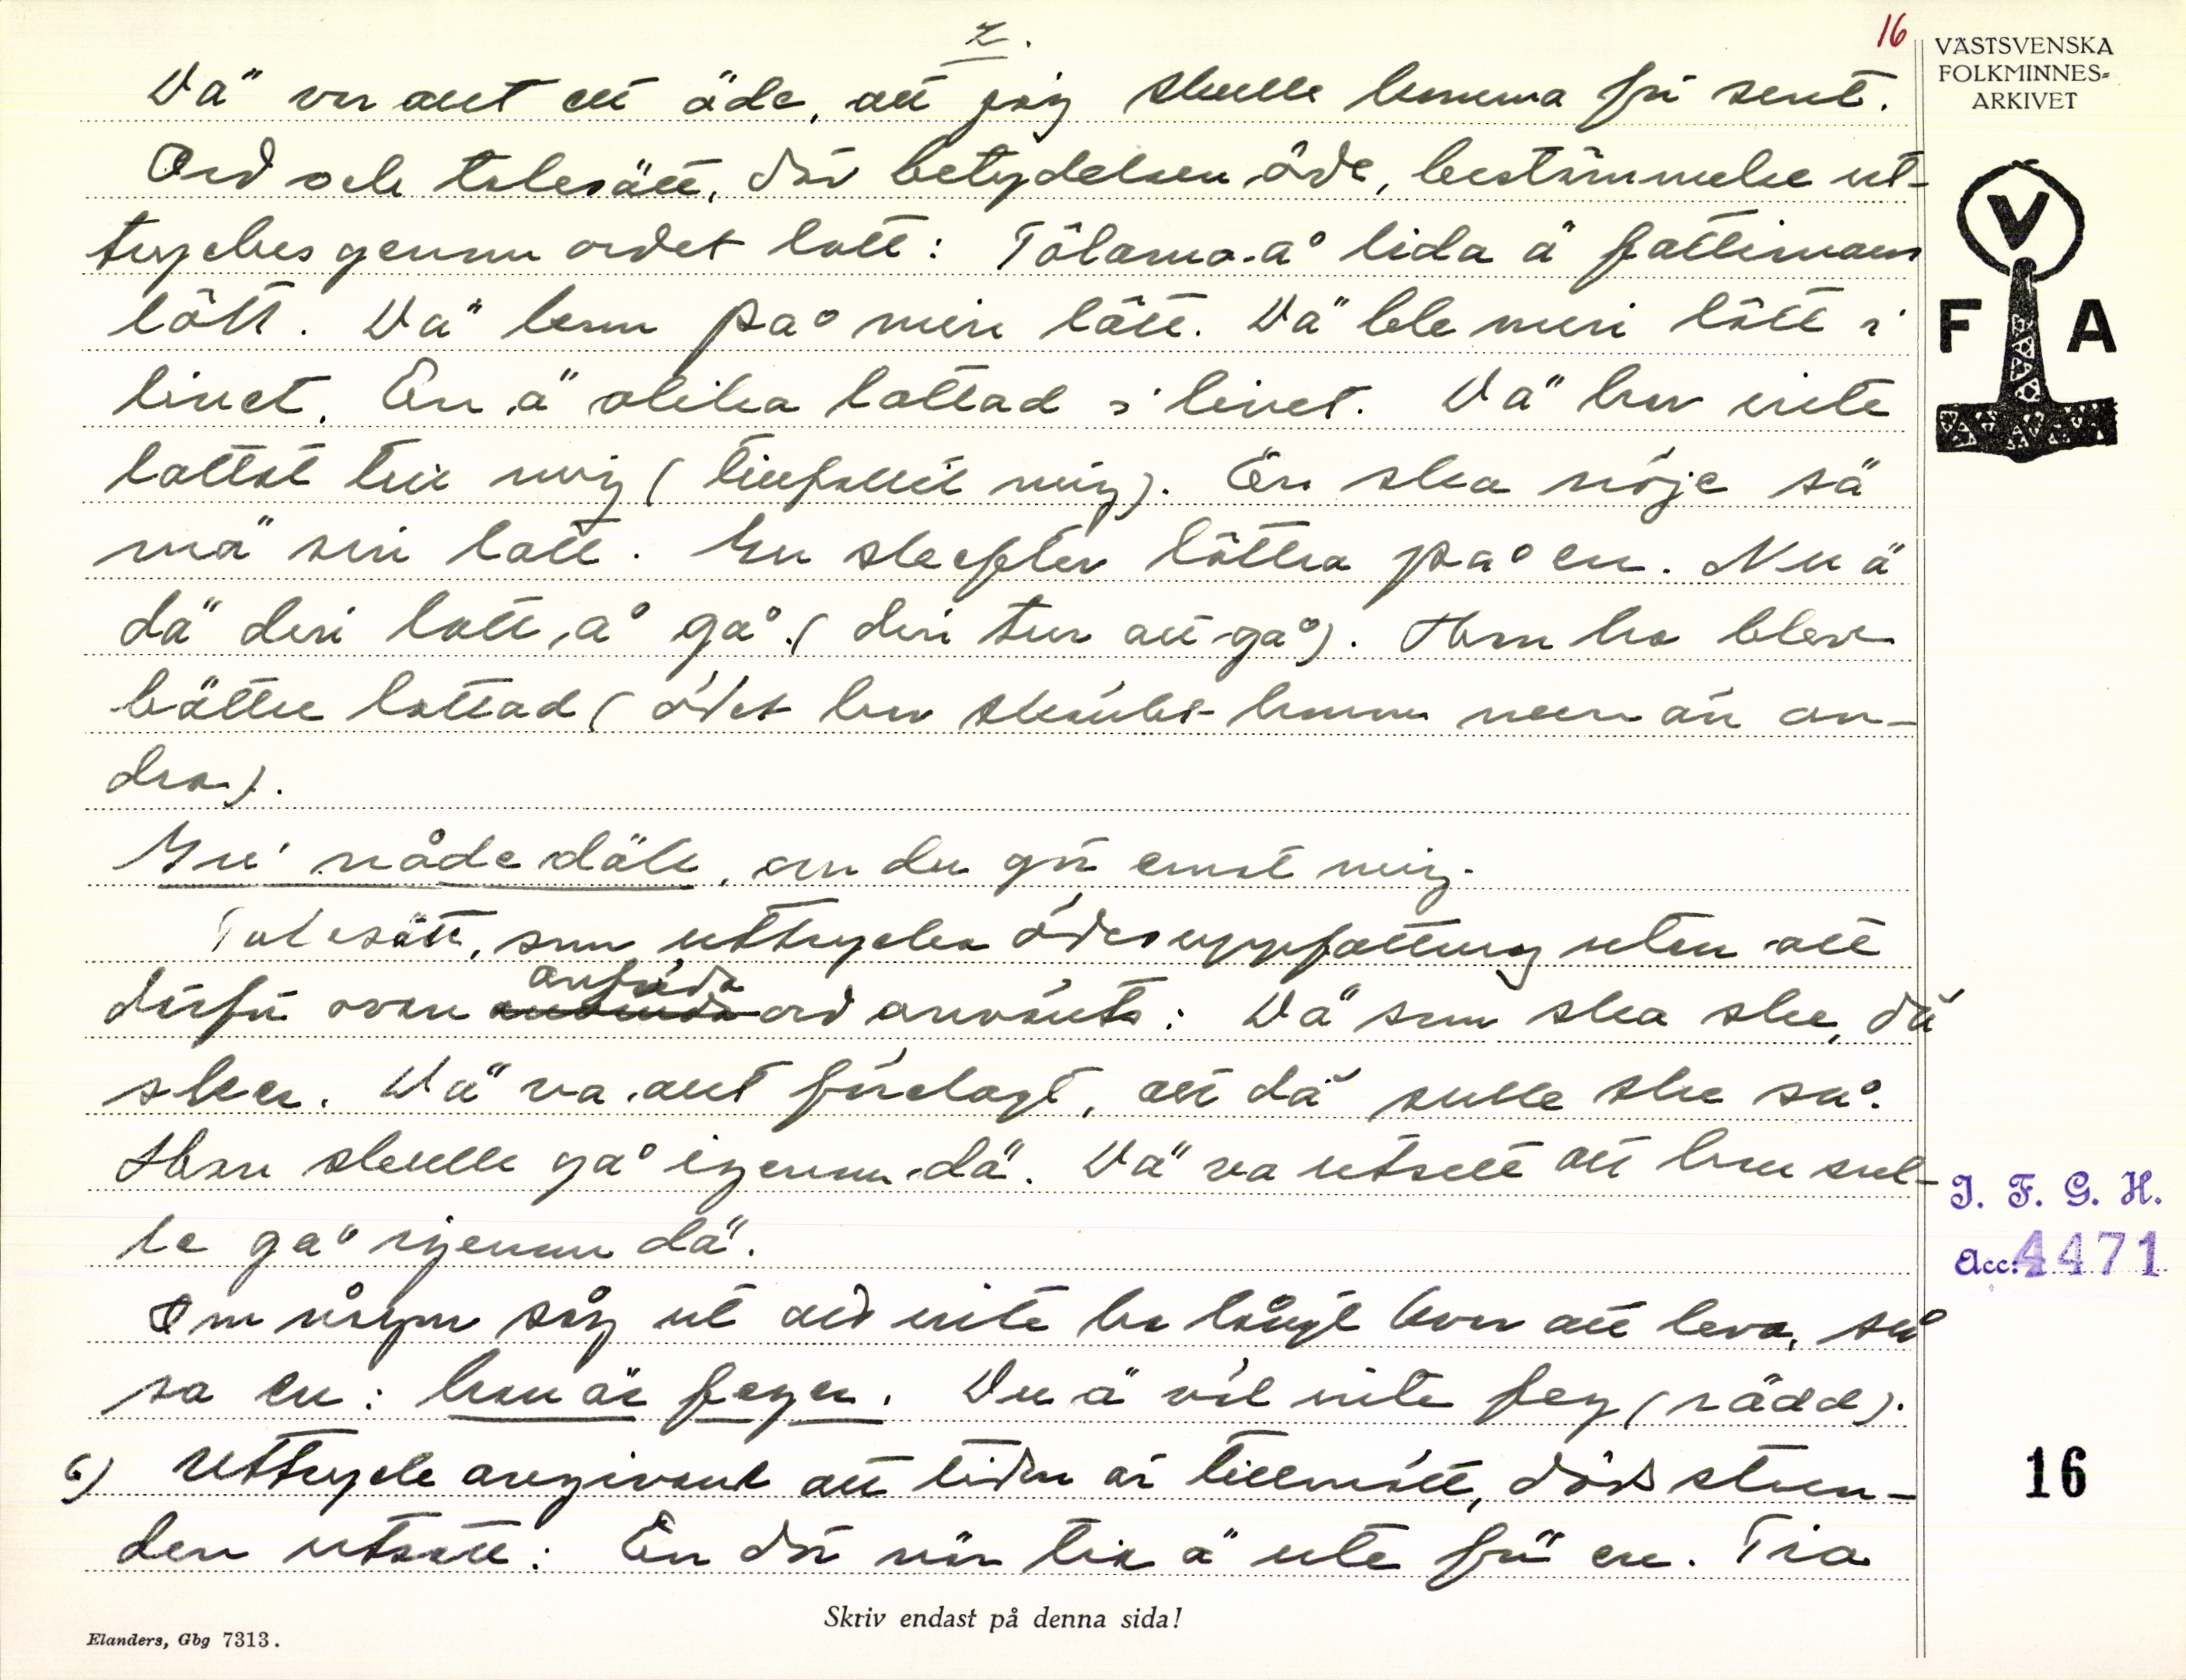 2.
16
VÄSTSVENSKA
FOLKMINNES-
ARKIVET
Dä var allt ett öde, att jag skulle komma för sent.
Ord och talesätt, där betydelsen öde, bestämmelse ut-
tryckes genom ordet lott: Tålamo å lida ä fattimans
lått. Dä kom på min lått. Dä ble min lått i
livet. En ä olika lottad i livet. Dä har inte
lottat till mig (tillfallit mig). En ska nöje sä
mä sin lott. En skeplev låttra på en. Nu ä
dä din lott å gå. (din tur att gå). Han ha blev
bättre lottad (ödet har skänkt honom mer än an-
dra).
Gu' nåde däk, om du gör emot mig.
Talesätt, som uttrycka ödesuppfattning utan att
därför ovan anförda ord använts: Dä som ska ske, dä
sker. Dä va allt förelagt, att dä sulle ske så.
Han skulle gå igenom dä. Dä va utsett att han sul-
le gå igenom dä.
Om någon såg ut att inte ha långt kvar att leva, så
sa en: han är feger. Du ä väl inte feg (rädd).
6) Uttryck angivande att tiden är tillmätt, dödsstun-
den utsatt: En dör när tia ä ute för en. Tia
V
F A
I. F. G. H.
Acc. 4471
16
Skriv endast på denna sida!
Elanders, Gbg 7313.